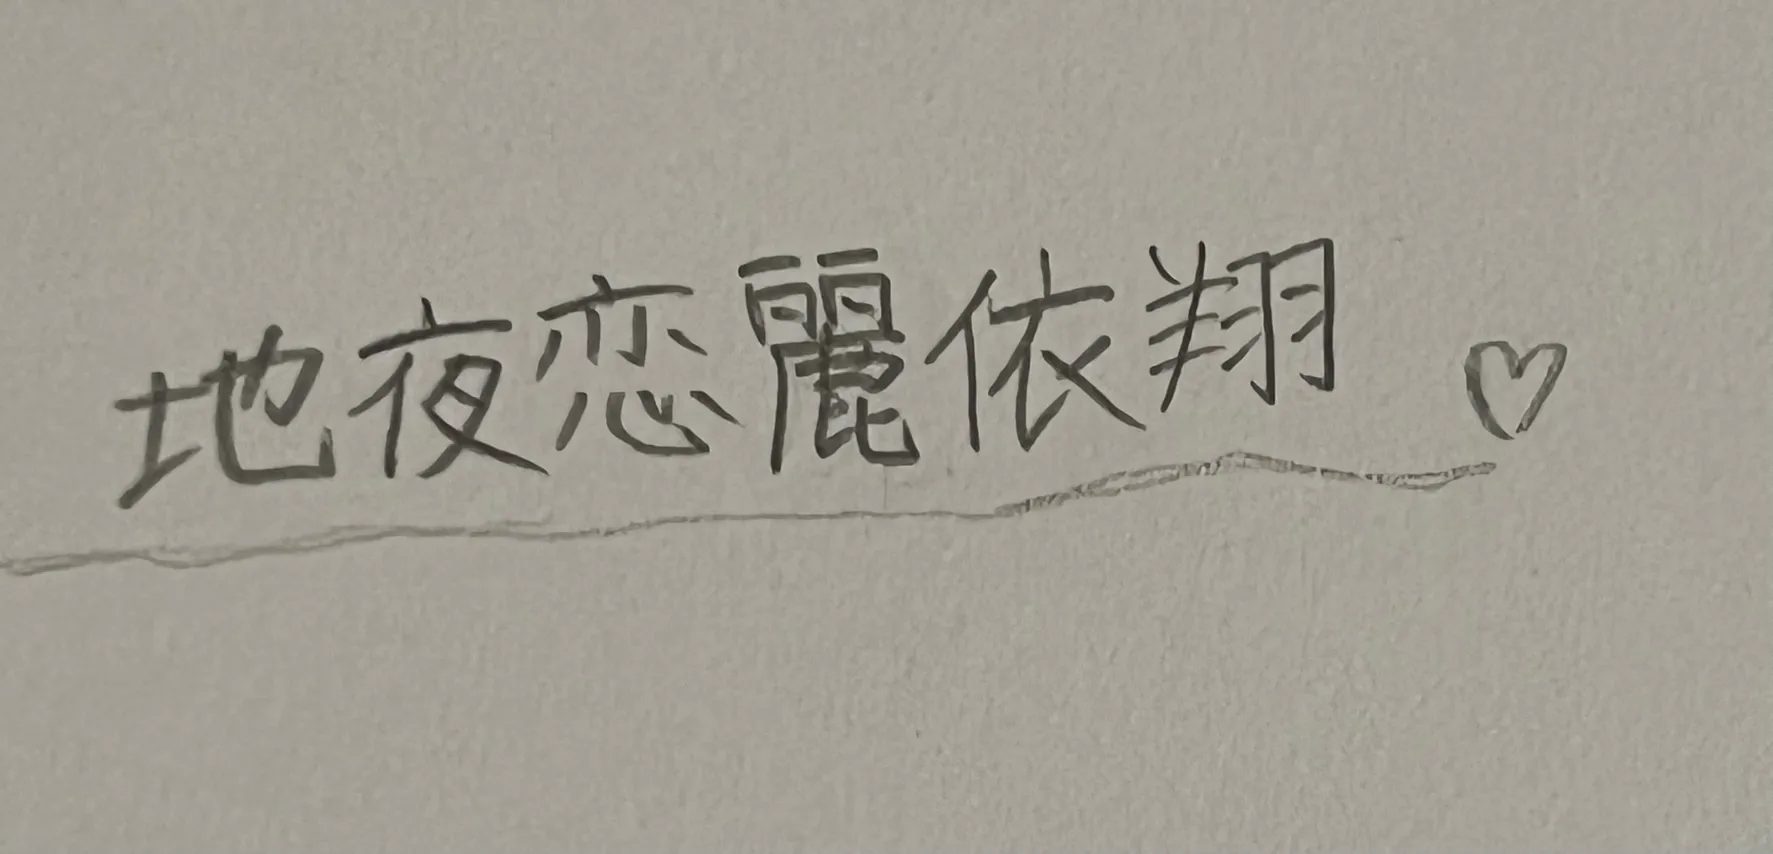 地夜恋麗依翔♡